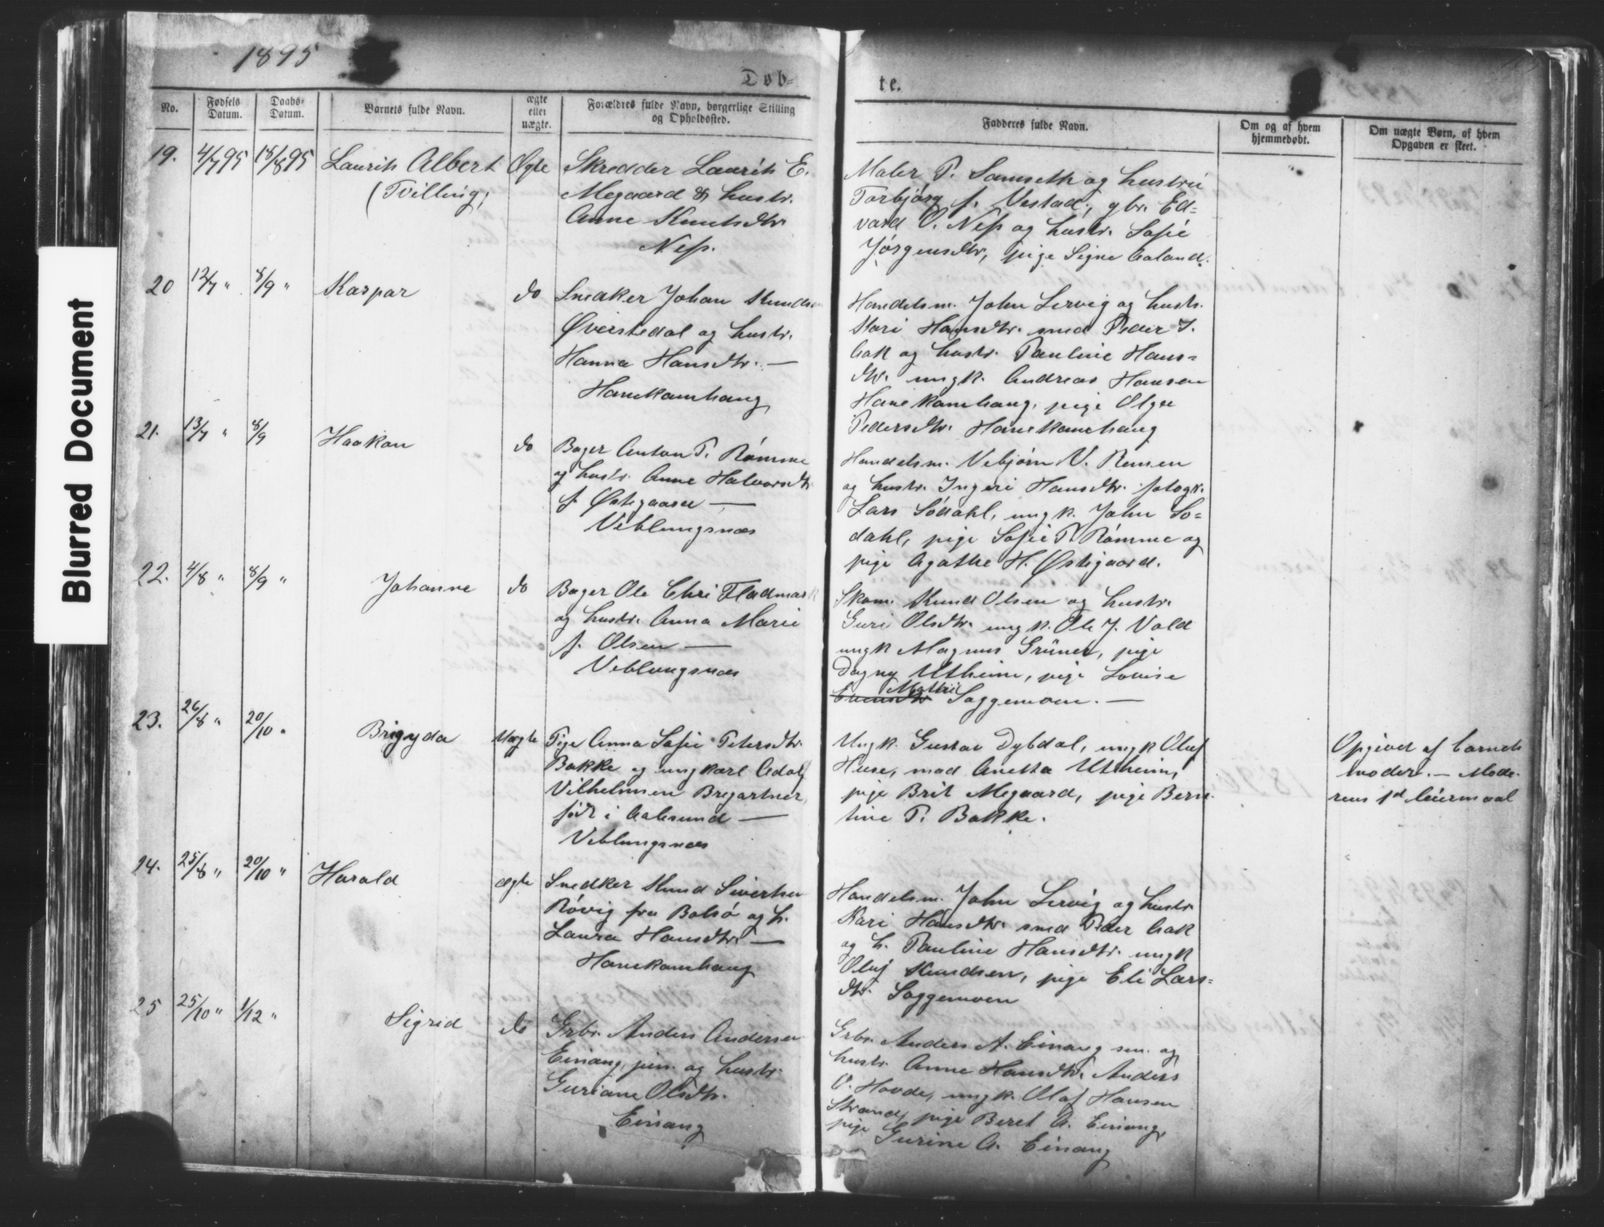 Blurred Document
1895
Døb-
te.
No.
Fødsels Datum.
Daabs-Datum.
Barnets fulde Navn.
ægte eller uægte.
Forældres fulde Navn, borgerlige Stilling og Opholdssted.
Fadderes fulde Navn.
Om og af hvem hjemmedøbt.
Om uægte Børn, af hvem Opgaven er skeet.
19. 4/7 95 18/8 95 Laurits Albert Ægte
(Tvilling)
Skredder Laurits E.
Megaard & hustr.
Anne Knutsdtr.
Nes.
Maler P. Samseth og hustru
Torbjørg f. Vestad, gbr. Ed-
vard O. Nes og hustr. Sofie
Jørgensdtr, pige Signe Aaland.
20 12/7 " 8/9 " Kaspar do
Snedker Johan Knuds
Øverstedal og hustr.
Hanna Hansdtr. —
Hanekamhaug
Handelsm. John Lervig og hustr.
Kari Hansdtr. smed Peder I.
Aak og hustr. Pauline Hans-
dtr. ungk. Andreas Hansen
Hanekamhaug, pige Olga
Pedersdtr. Hanekamhaug
21. 13/7 " 8/9 Haakon do
Bager Anton P. Rømme
og hustr. Anne Halvorsdtr
f. Østigaard —
Veblungsnæs
Handelsm. Vebjørn V. Remen
og hustr. Ingeri Hansdtr. fotogr.
Lars Sødahl, ungk. John Sø-
dahl, pige Sofie P. Rømme og
pige Agathe H. Østigaard.
22. 4/8 " 8/9 " Johanne do
Bager Ole Chri Fladmark
og hustr. Anna Marie
f. Olsen —
Veblungsnæs
Skom. Knud Olsen og hustr.
Guri Olsdtr. ungk. Ole J. Vold
ungk Magnus Grüner, pige
Dagny Utheim, pige Louise
Mathie
Soggemoen. —
23. 26/8 " 20/10 " Brigyda Uægte
Pige Anna Sofie Petersdtr.
Bakke og ungkarl Adolf
Vilhelmsen Bregartner,
født i Aalesund —
Veblungsnæs
Ungk. Gustav Dybdal, ungk Oluf
Huse, mad. Anetta Utheim,
pige Brit Megaard, pige Bern-
tine P. Bakke.
Opgivet af barnets
moder. — Mode-
rens 1st leiermaal
24. 25/8 " 20/10 " Harald ægte
Snedker Knud Sivertsen
Røvig fra Bolsø og h.
Laura Hansdtr. —
Hanekamhaug
Handelsm. John Lervig og hustr
Kari Hansdtr. smed Peder Aak
og h. Pauline Hansdtr. ungk
Oluf Knudsen, pige Eli Lars-
dtr. Soggemoen
25 25/10 " 1/12 " Sigrid do
Grbr. Anders Andersen
Einang, jun. og hustr.
Guriane Olsdtr.
Einang
Grbr. Anders A. Einang sen. og
hustr. Anne Hansdtr. Anders
O. Hovde, ungk. Olaf Hansen
Strande, pige Beret A. Einang,
pige Gurine A. Einang